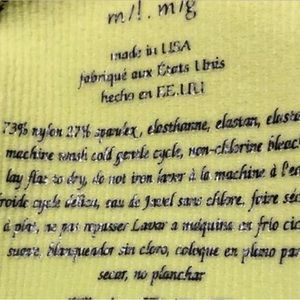 m/l. m/g
made in USA
fabriqué aux États Unis
hecho en EE.UU
73% nylon 27% spandex, elasthanne, elastan,
machine wash cold gentle cycle, non-chlorine bleach
lay flat to dry, do not iron laver à la machine à l'eau
froide cycle délicat, eau de Javel sans chlore, faire sécher
à plat, ne pas repasser Lavar a máquina en frío ciclo
suave, blanqueador sin cloro, coloque en plano para
secar, no planchar